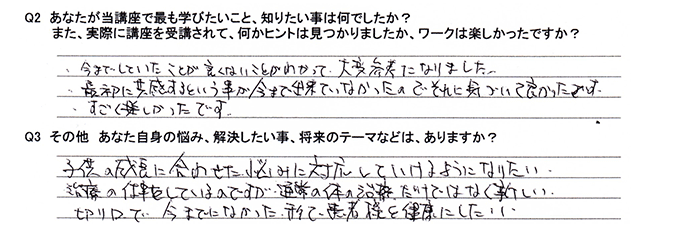 Q2 あなたが当講座で最も学びたいこと、知りたい事は何でしたか？
また、実際に講座を受講されて、何かヒントは見つかりましたか、ワークは楽しかったですか？
・今までしていたことが良くないことがわかって、大変参考になりました。
・最初に共感するという事が今まで出来ていなかったのでそれに気づいて良かったです。
・すごく楽しかったです。
Q3 その他 あなた自身の悩み、解決したい事、将来のテーマなどは、ありますか？
子供の成長に合わせた悩みに対応していけるようになりたい。
治療の仕事をしているのですが、通常の体の治療だけではなく新しい
切り口で、今までになかった形で患者様を健康にしたい。